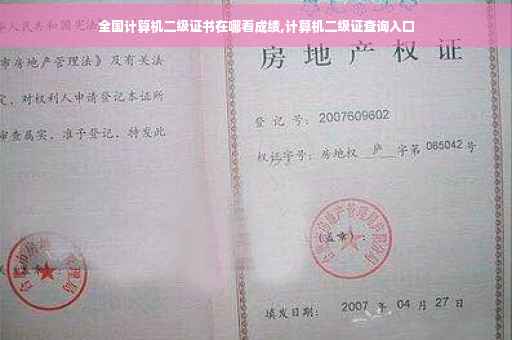 全国计算机二级证书在哪看成绩,计算机二级证查询入口
华人民共和国宪法
市房地产管理法》及有关法
定，对权利人申请登记本证所
审查属实，准予登记，特发此
房地产权证
登记号：2007609602
权证字号：房地权 庐 字第 085042 号
(盖章)：
填发日期： 2007 年 04 月 27 日